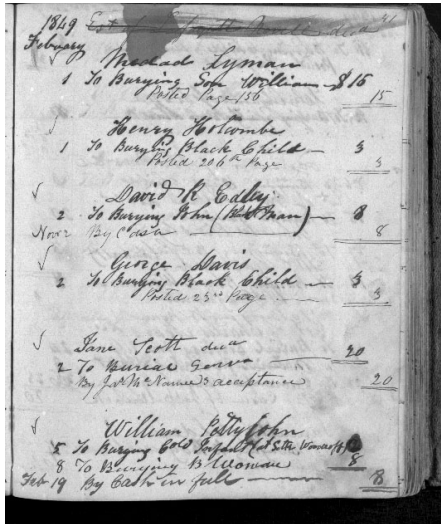 1849
February
Medad Lyman
1 To Burying Son William $15
Posted Page 156
15
Henry Holcombe
1 To Burying Black Child 3
Posted 206th Page
3
David R
2 To Burying John 8
Nov 2 By Cash 8
George Davis
2 To Burying Black Child 3
Posted 23rd Page
3
Jane Scott
2 To Burial 20
By McNamee's acceptance 20
William Pettyjohn
5 To Burying Infant
8 To Burying B Woman 8
Feb 19 By Cash in full 8